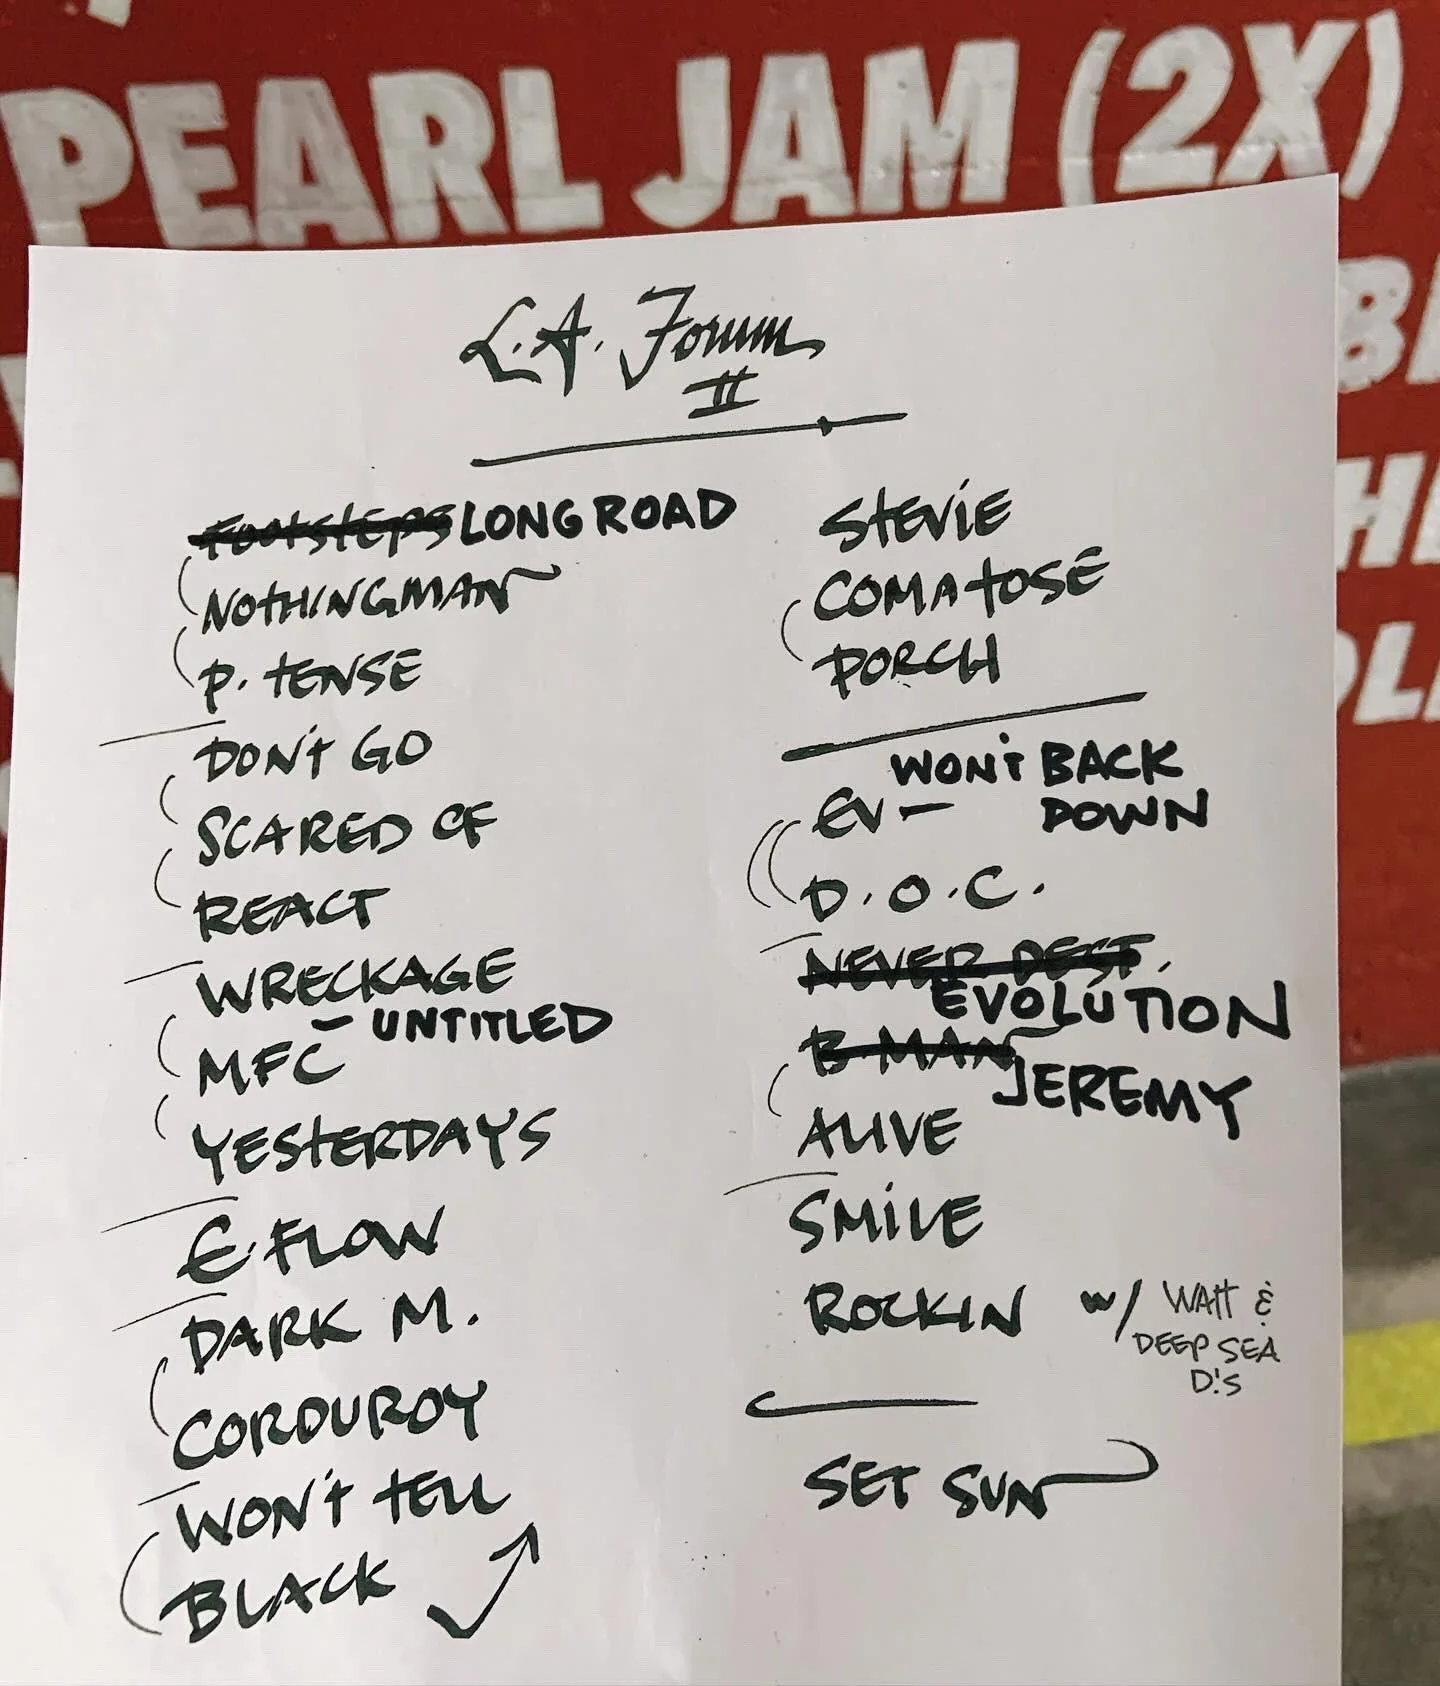 PEARL JAM (2X)
L.A. Forum
II
Footsteps LONG ROAD
NOTHINGMAN
P. TENSE
DON't GO
SCARED OF
REACT
WRECKAGE
MFC - UNTITLED
YESTERDAYS
E. FLOW
DARK M.
CORDUROY
WON't tELL
BLACK
StEViE
COMAtOSE
PORCH
EV - WON'T BACK DOWN
D.O.C.
NEVER DEST.
EVOLUTION
B. MAN JEREMY
ALIVE
SMiLE
ROCKIN w/ WAtt &
DEEP SEA
D.'S
SET SUN